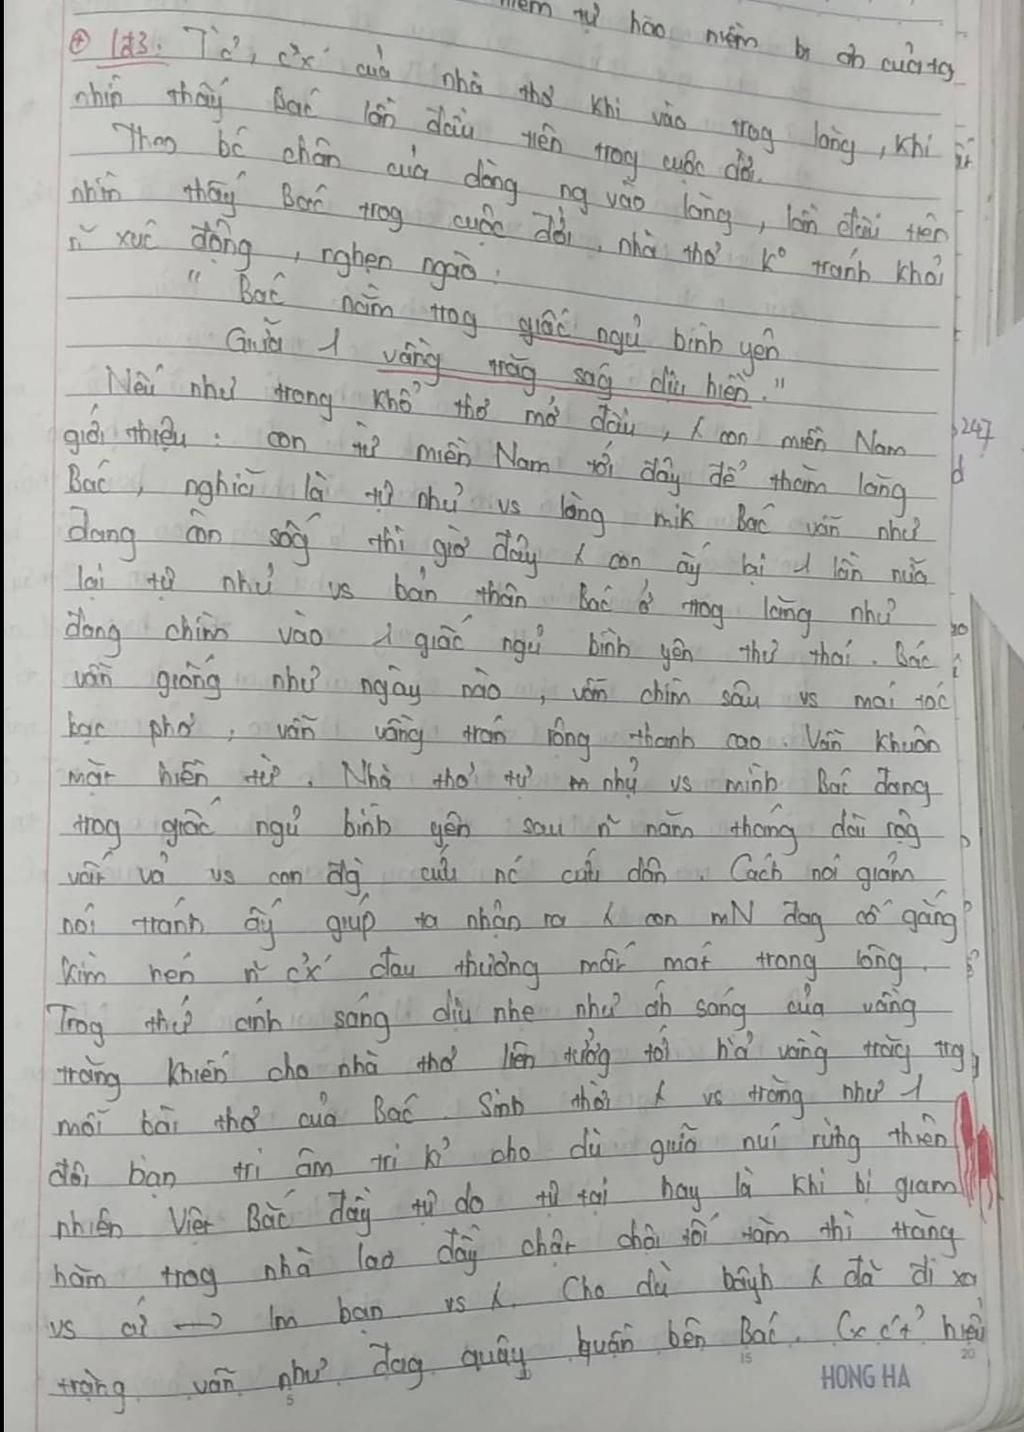 niềm tự hào niềm bi ah của tg
⊕ Lđ3. T²c², c²x´ của nhà thơ khi vào trog lăng, khi
nhìn thấy Bác lần đầu tiên trog cuộc đời.
Theo bc chân của dòng ng vào lăng, lần đầu tiên
nhìn thấy Bác trog cuộc đời, nhà thơ k° tránh khỏi
n~ xúc động, nghẹn ngào:
" Bác nằm trog giấc ngủ bình yên
Giữa 1 vầng trăgság dịu hiền."
Nếu như trong khổ thơ mở đầu, ng con miền Nam
giới thiệu: con từ miền Nam tới đây để thăm lăng
Bác, nghĩa là tự nhủ vs lòng mik Bác vẫn như
đang còn sốg thì giờ đây ng con ấy lại 1 lần nữa
lại tự nhủ vs bản thân Bác ở trog lăng như
đang chìm vào 1 giấc ngủ bình yên thư thái. Bác
vẫn giống như ngày nào, vẫn chìm sâu vs mái tóc
bạc phơ, vẫn vầng trán rộng thanh cao. Vẫn khuôn
mặt hiền từ. Nhà thơ tự nhủ vs mình Bác đang
trog giấc ngủ bình yên sau n~ năm tháng dài rộg
vất vả vs con đg cứu nc cứu dân. Cách nói giảm
nói tránh ấy giúp ta nhận ra ng con mN đag cố gắng
kìm nén n~ c²x´ đau thương mất mát trong lòng.
Trog thứ ánh sáng dịu nhẹ như áh sáng của vầng
trăng khiến cho nhà thơ liên tưởng tới h/ả vầng trăng trg
mỗi bài thơ của Bác. Sinh thời ng vs trăng như 1
đôi bạn tri âm tri kỉ cho dù giữa núi rừng thiên
nhiên Việt Bắc đầy tự do tự tại hay là khi bị giam
hãm trog nhà lao đầy chật chội tối tăm thì trăng
vs ai → lm bạn vs ng. Cho dù bâyh ng đã đi xa
trăng vẫn như đag quây quần bên Bác. hiểu
247
d
HONG HA
5
15
20